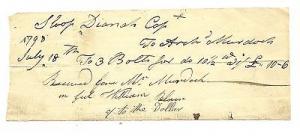 Sloop Diana's Capt
To Archd Murdoch
1798
July 18th To 3 Bolts for do 10½ wt @ / £ – 10 – 6
Received from Mr Murdoch
in full William